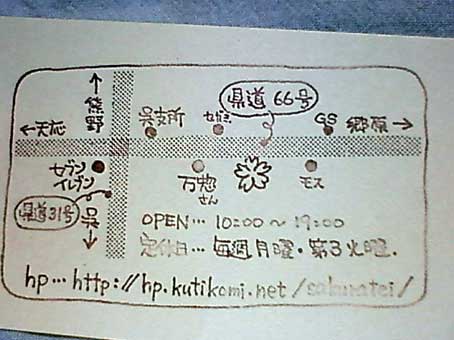 ↑熊野
県道66号
←天応
呉支所
セガミ
GS
郷原→
セブン
イレブン
万惣
さん
モス
県道31号
呉↓
OPEN…10:00〜19:00
定休日…毎週月曜・第3火曜.
hp…http://hp.kutikomi.net/sakuratei/